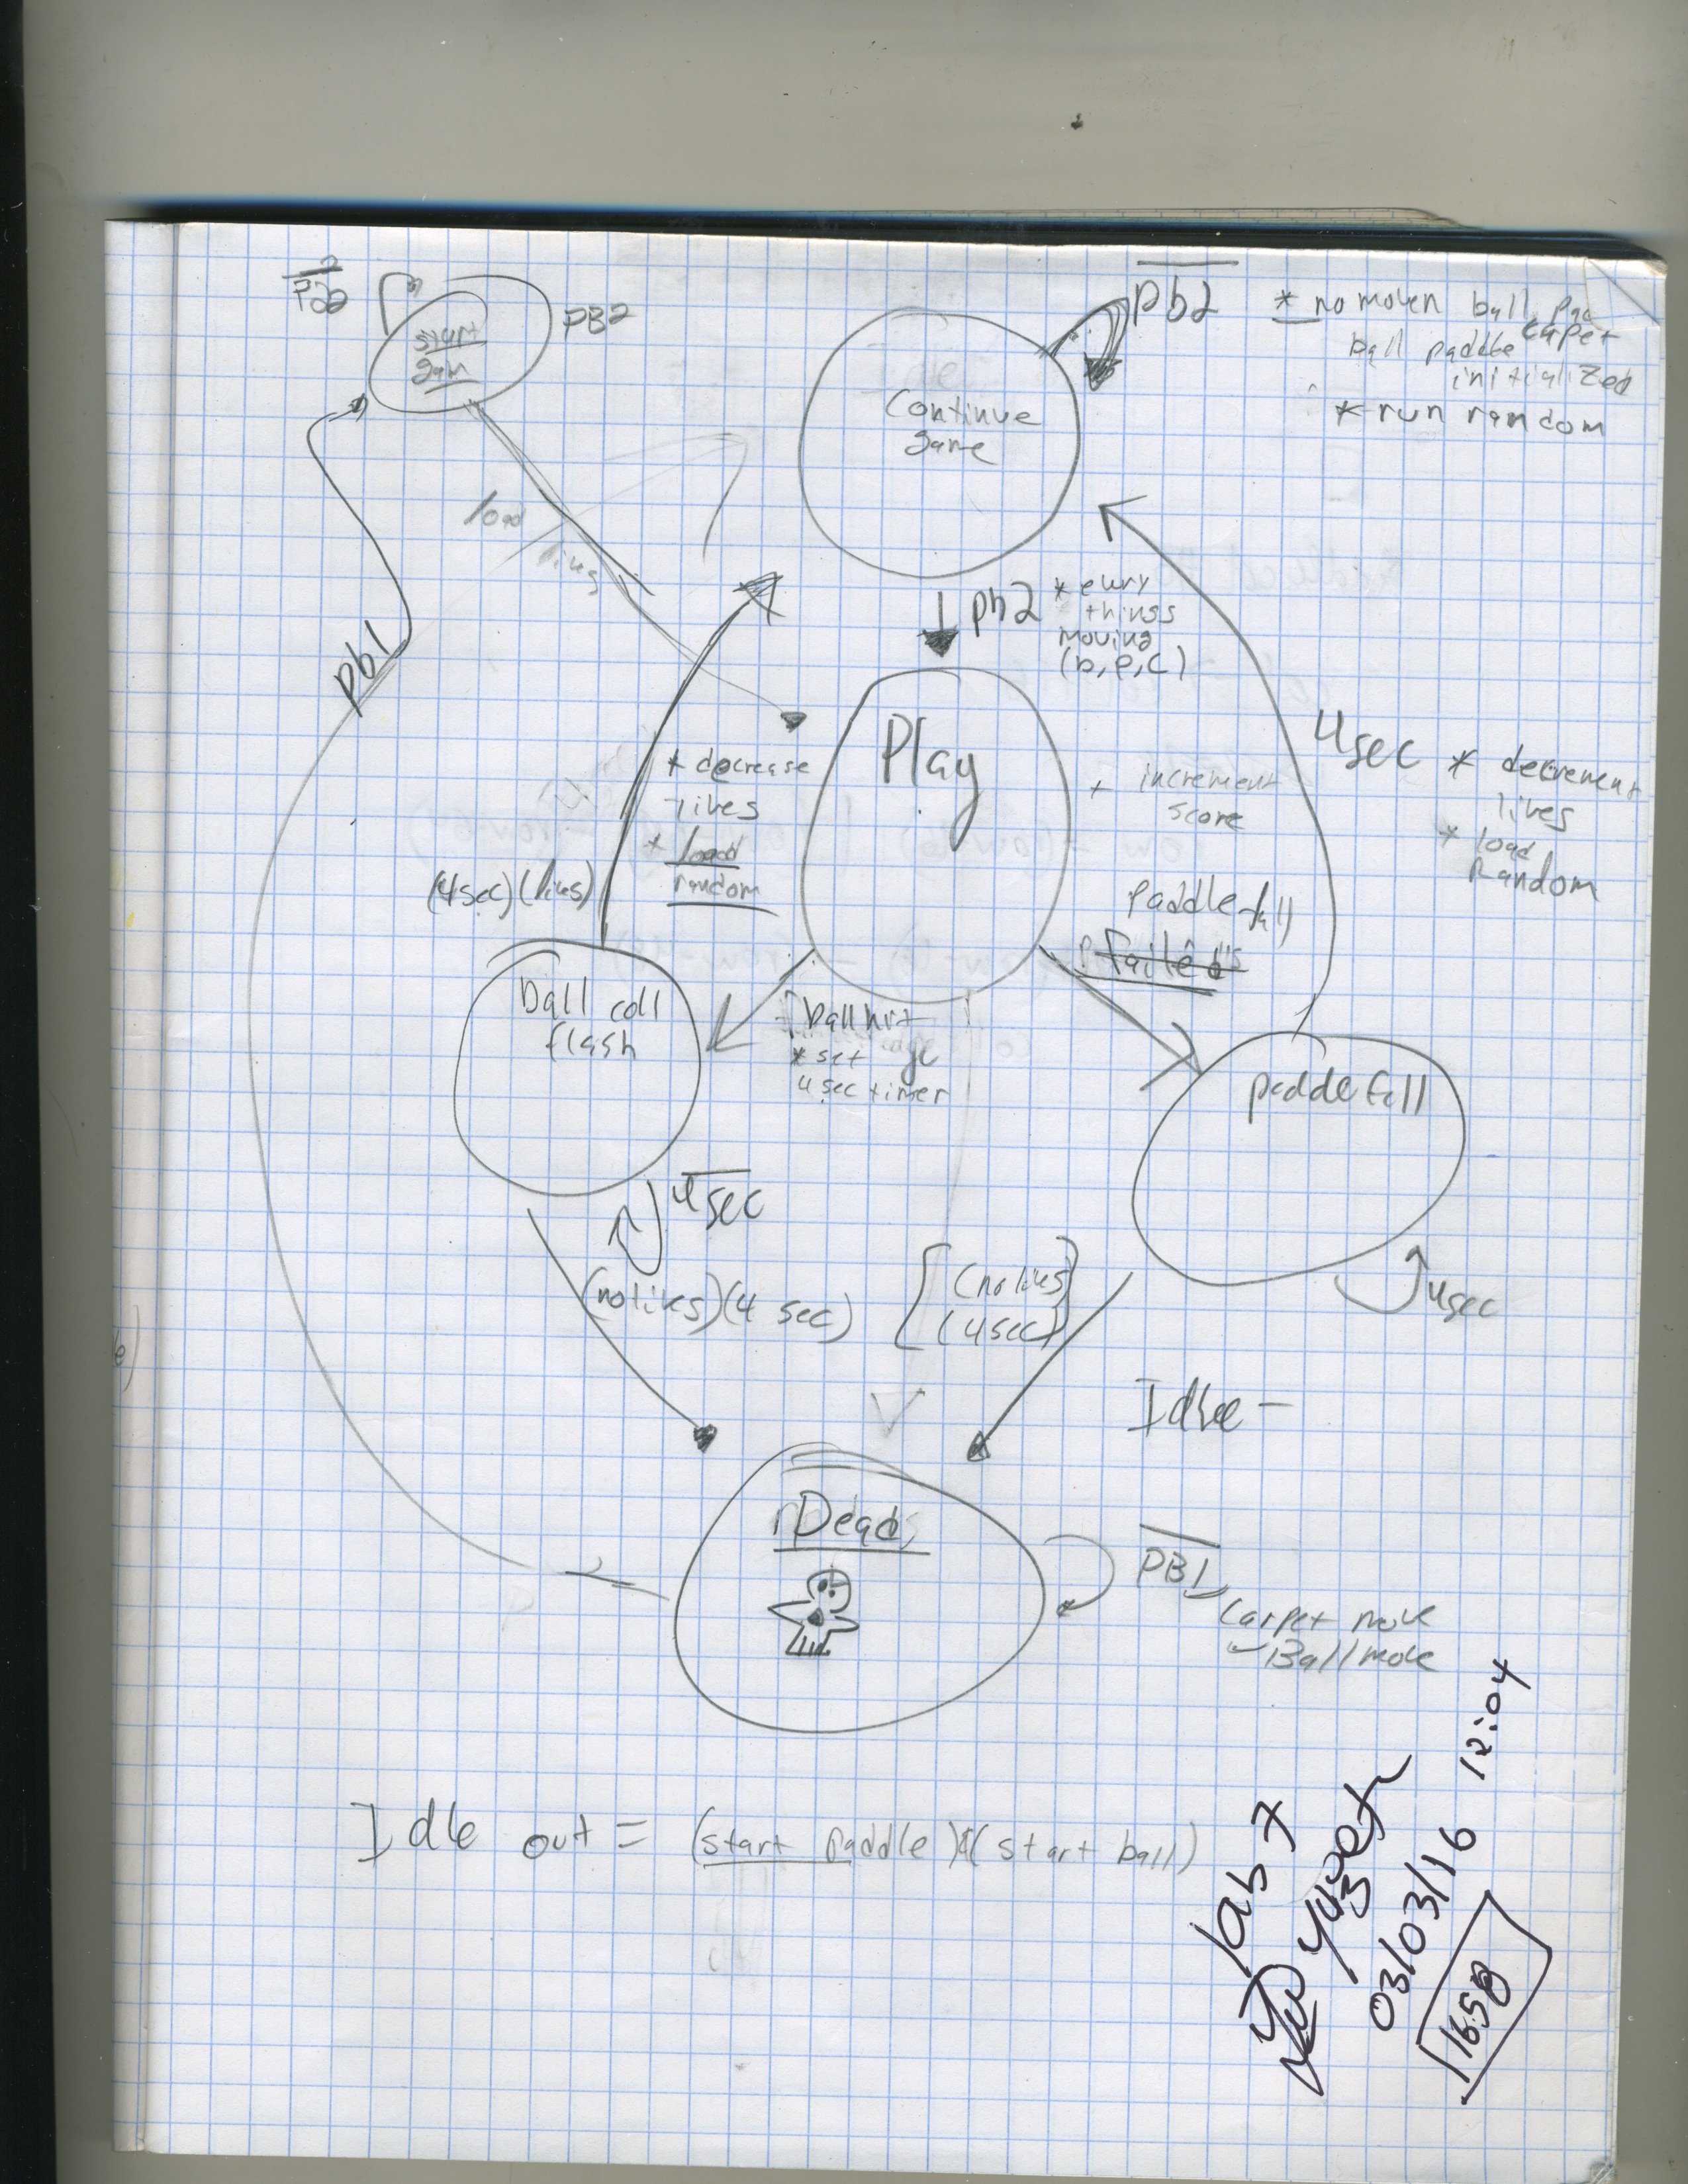 PB2
start
gam
pb2
* no moven ball, pad
carpet
ball paddle
initialized
* run random
Continue
game
load
lives
pb1
pb2
* evry
things
moving
(b, p, c)
Play
* decrease
lives
* load
random
(4sec)(lives)
+ increment
score
4sec
* decrement
lives
* load
Random
Paddle fall
Failed
ball coll
flash
ball hit
* set
4 sec timer
paddle fall
4sec
(no lives)(4 sec)
(no lives)
(4 sec)
4sec
Idle -
Dead
PB1
Carpet move
Ball move
Idle out = (start paddle)&(start ball)
lab 7
03/03/16 12:04
16:58